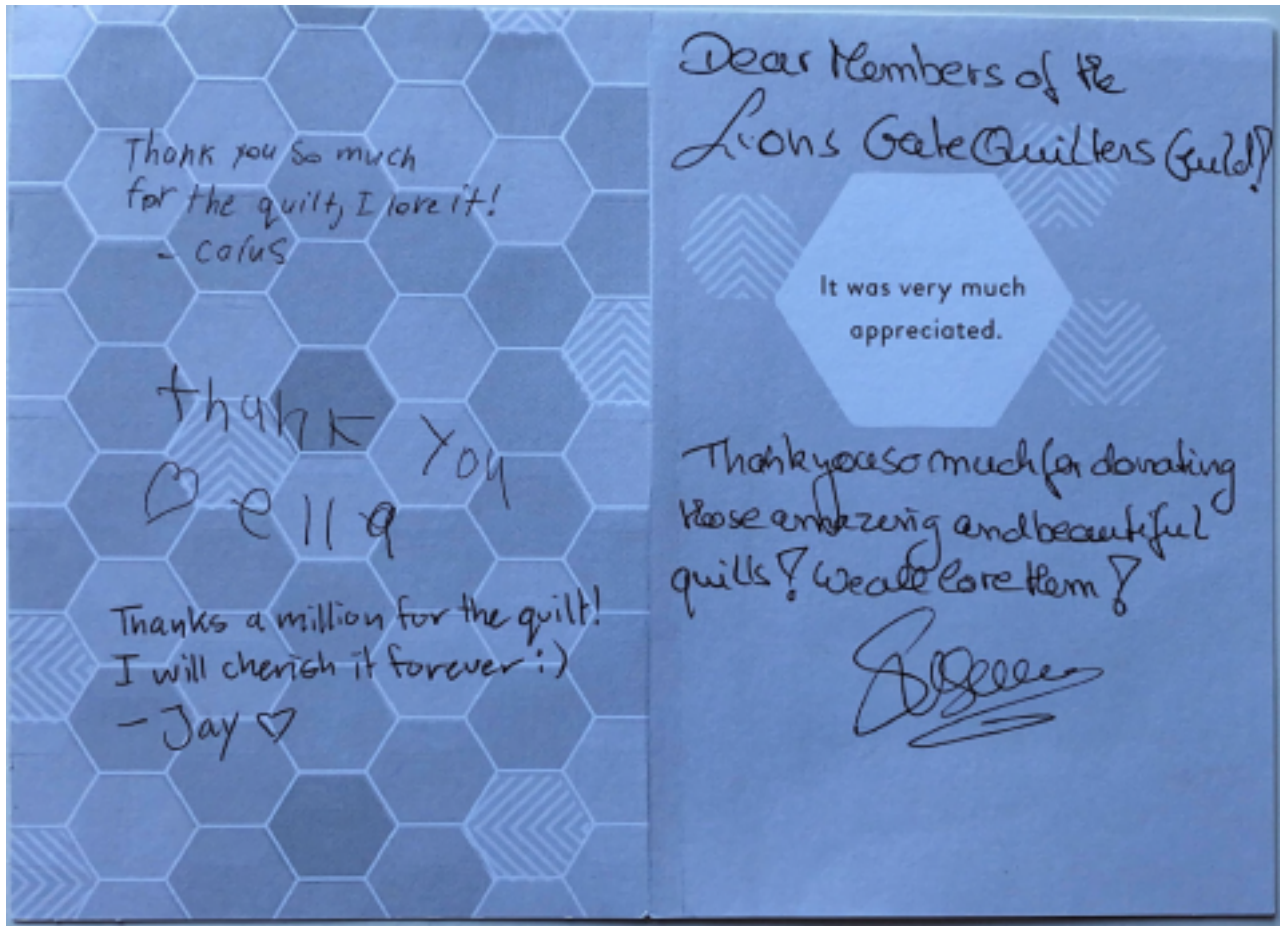 Thank you so much
for the quilt, I love it!
- Calus
thank you
♡ ella
Thanks a million for the quilt!
I will cherish it forever :)
- Jay ♡
Dear Members of the
Lions Gate Quilters Guild!
It was very much
appreciated.
Thank you so much for donating
those amazing and beautiful
quilts! We all love them!